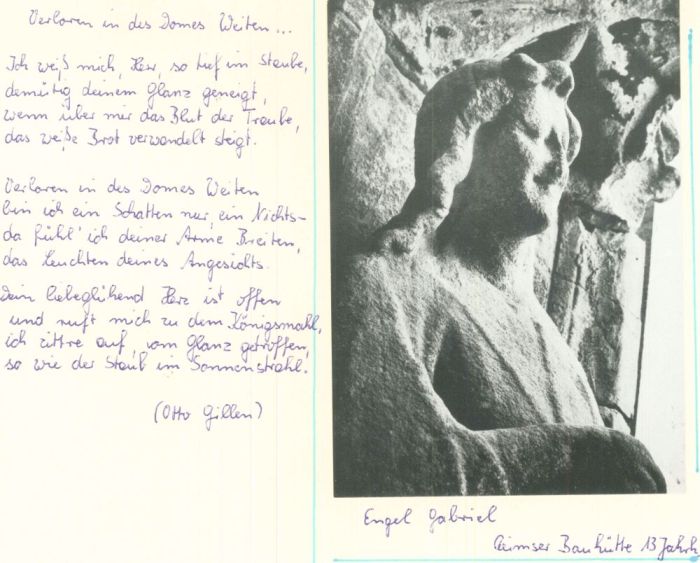 Verloren in des Domes Weiten...
Ich weiß mich, Herr, so tief im Staube,
demütig deinem Glanz geneigt,
wenn über mir das Blut der Traube,
das weiße Brot verwandelt steigt.
Verloren in des Domes Weiten
bin ich ein Schatten nur, ein Nichts-
da fühl' ich deiner Arme Breiten,
das Leuchten deines Angesichts.
Dein liebeglühend Herz ist offen
und ruft mich zu dem Königsmahl,
ich zittre auf, vom Glanz getroffen,
so wie der Staub im Sonnenstrahl.
(Otto Gillen)
Engel Gabriel
Reimser Bauhütte 13 Jahrh